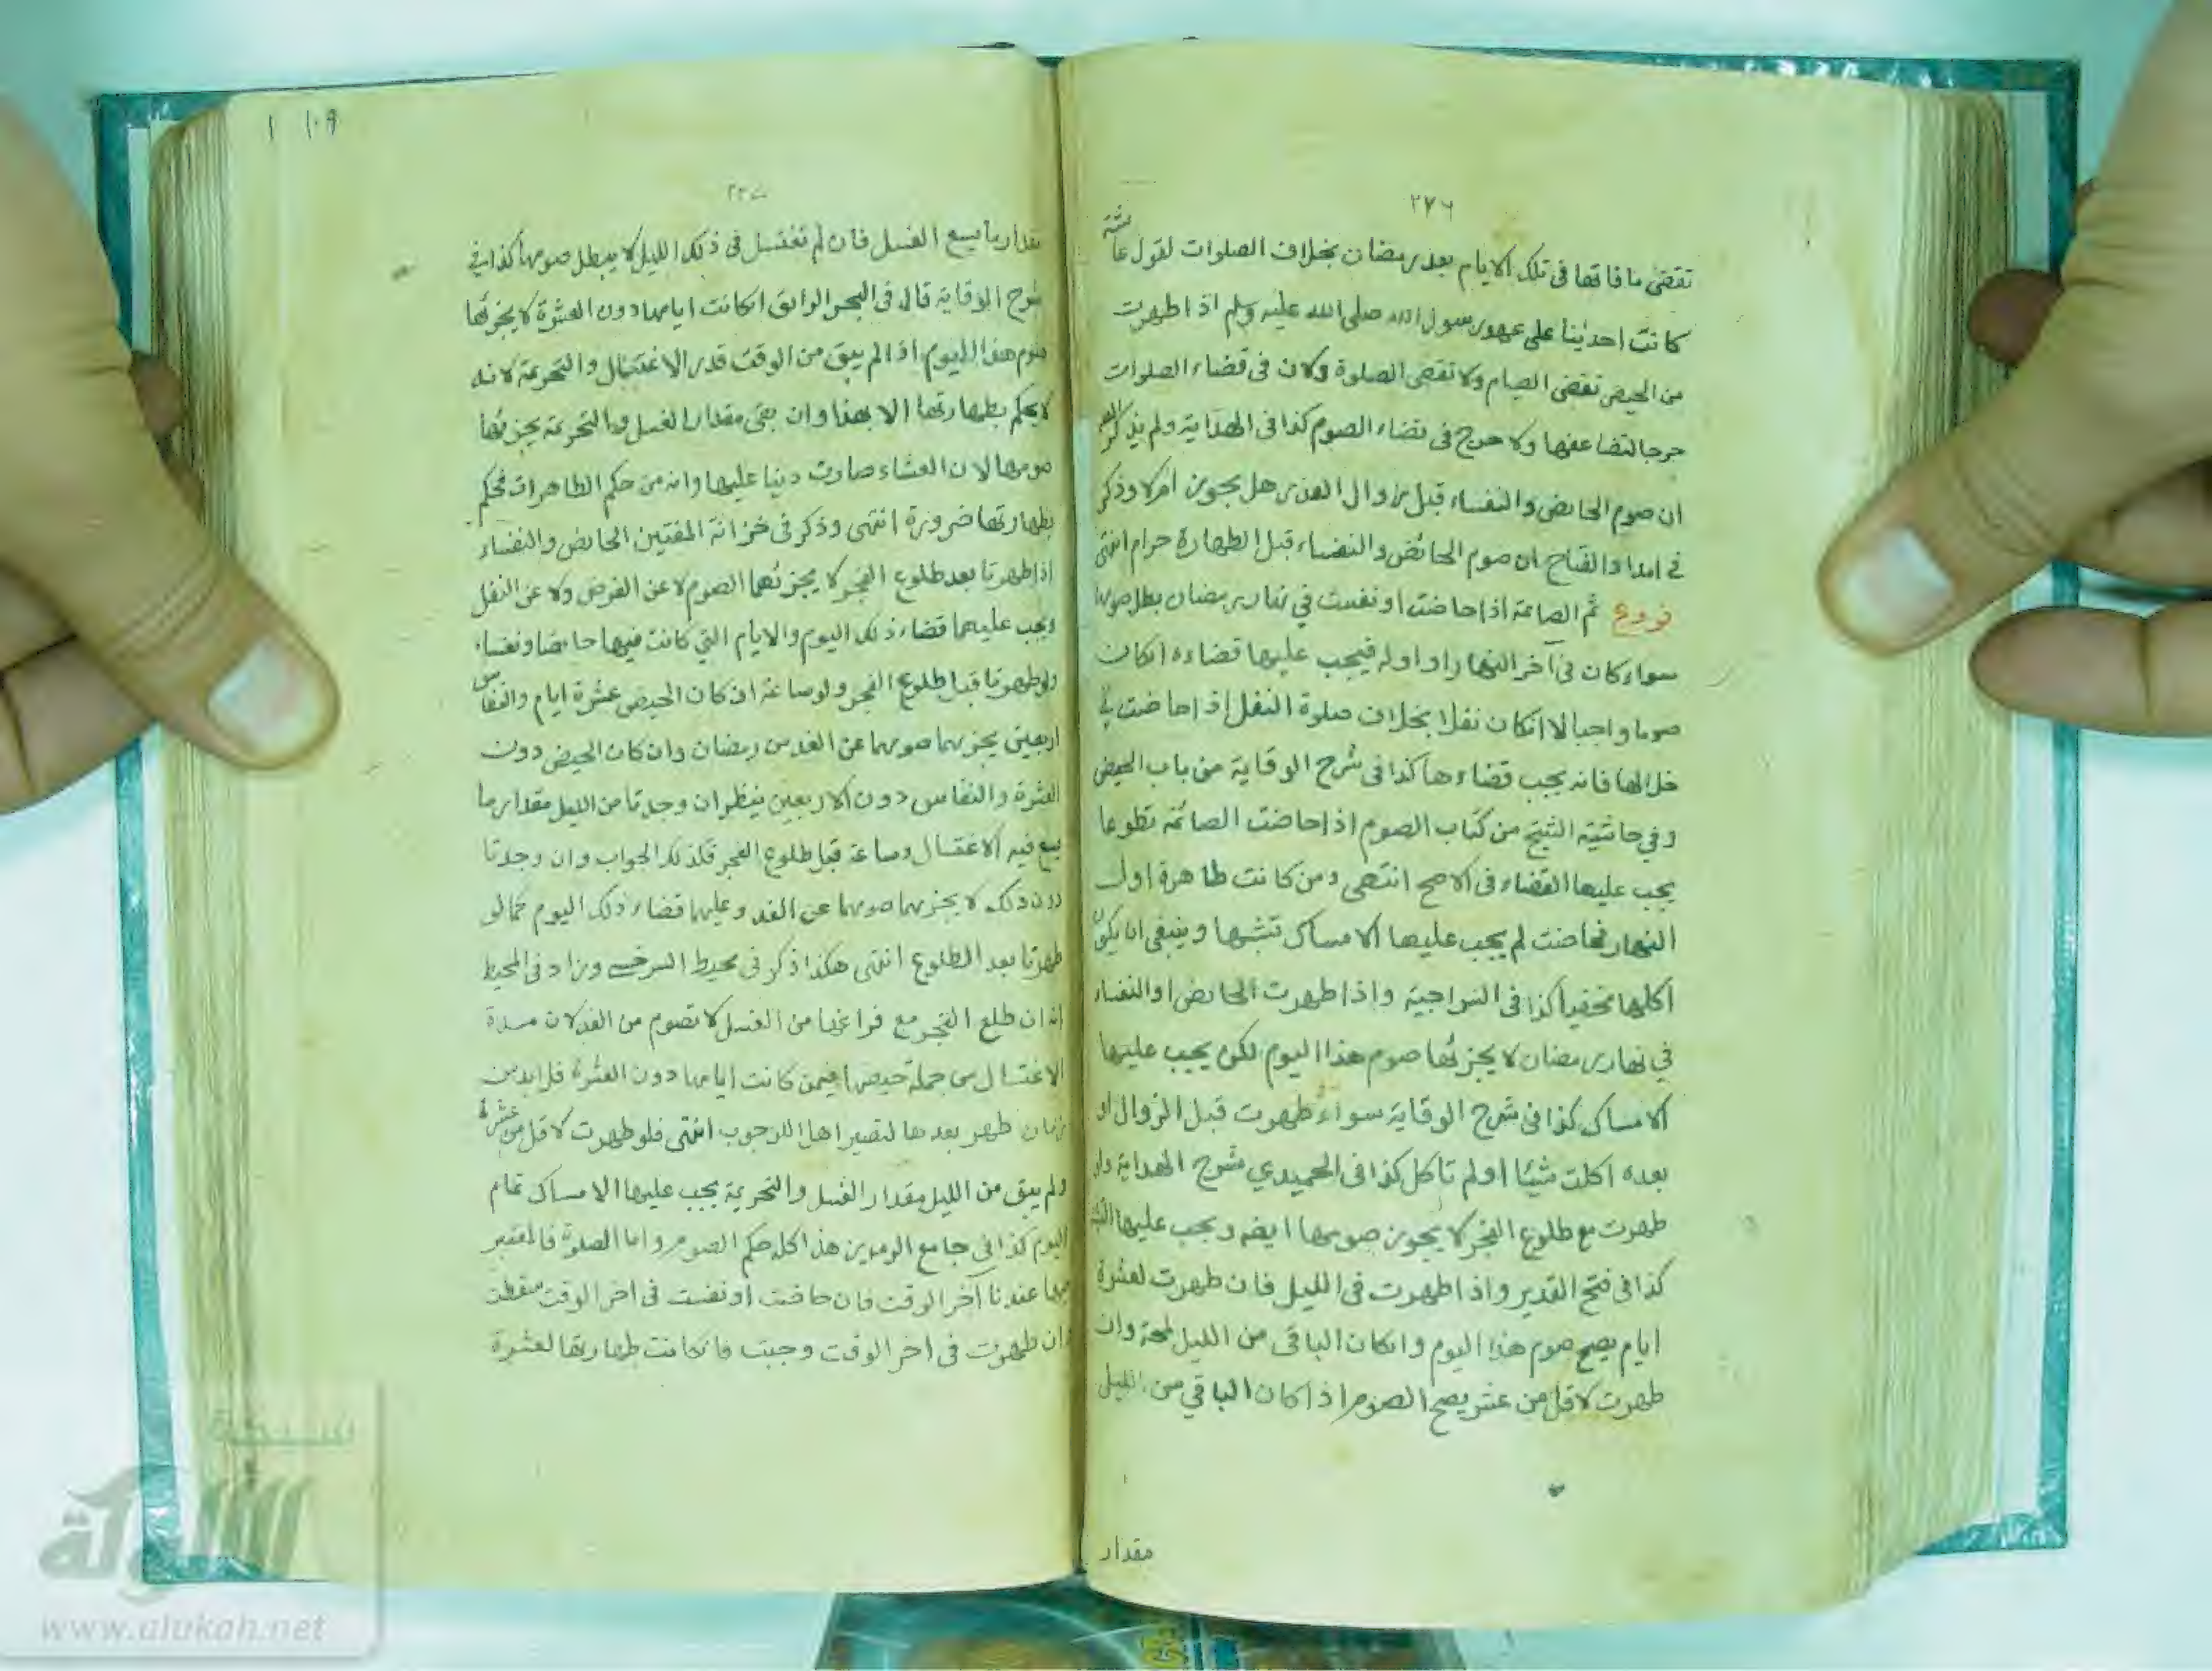 ٢٧٦
تقضى ما فاتها فى تلك الايام بعد رمضان بخلاف الصلوات لقول عائشة
كانت احدينا على عهد رسول الله صلى الله عليه وسلم اذا طهرت
من الحيض تقضى الصيام ولا تقضى الصلوة ولان فى قضاء الصلوات
حرجا لتضاعفها ولا حرج فى قضاء الصوم كذا فى الهداية ولم يذكر
ان صوم الحائض والنفساء قبل زوال العذر هل يجوز ام لا وذكر
فى امداد الفتاح ان صوم الحائض والنفساء قبل الطهارة حرام انتهى
فروع ثم الصائمة اذا حاضت او نفست في نهار رمضان بطل صومها
سواء كان فى آخر النهار او اوله فيجب عليها قضاءه انكان
صوما واجبا لا انكان نفلا بخلاف صلوة النفل اذ احاضت في
خلالها فانه يجب قضاءها كذا فى شرح الوقاية من باب الحيض
وفي حاشيته الشيخ من كتاب الصوم اذا حاضت الصائمة تطوعا
يجب عليها القضاء فى الاصح انتهى ومن كانت طاهرة اول
النهار فحاضت لم يجب عليها الامساك تشبها وينبغى ان يكون
اكلها مخفيا كذا فى السراجية واذا طهرت الحائض او النفساء
في نهار رمضان لا يجزئها صوم هذا اليوم لكن يجب عليها
الامساك كذا فى شرح الوقاية سواء طهرت قبل الزوال او
بعده اكلت شيئا او لم تاكل كذا فى الحميدي شرح الهداية وان
طهرت مع طلوع الفجر لا يجوز صومها ايضه ويجب عليها
كذا فى فتح القدير واذا طهرت فى الليل فان طهرت لعشرة
ايام يصح صوم هذا اليوم وانكان الباقى من الليل لمحة وان
طهرت لاقل من عشر يصح الصوم اذا كان الباقي من الليل
مقدار
١٠٩ ١
مقدار ما يسع الغسل فان لم تغتسل فى ذلك الليل لا يبطل صومها كذا في
شرح الوقاية قال فى البحر الرائق انكانت ايامها دون العشرة لا يجزئها
صوم هذا اليوم اذا لم يبق من الوقت قدر الاغتسال والتحريمة لانه
لا يحكم بطهارتها الا بهذا وان بقى مقدار الغسل والتحريمة يجزئها
صومها لان العشاء صارت دينا عليها وانه من حكم الطاهرات فحكم
بطهارتها ضرورة انتهى وذكر فى خزانة المفتين الحائض والنفساء
اذا طهرتا بعد طلوع الفجر لا يجزئهما الصوم لا عن الفرض ولا عن النفل
ويجب عليهما قضاء ذلك اليوم والايام التي كانت فيها حائضا ونفساء
ولو طهرتا قبل طلوع الفجر ولو ساعة ان كان الحيض عشرة ايام والنفاس
اربعين يجزيهما صومهما عن الغد من رمضان وان كان الحيض دون
العشرة والنفاس دون الاربعين ينظر ان وجدتا من الليل مقدار ما
يسع فيه الاغتسال وساعة قبل طلوع الفجر فكذلك الجواب وان وجدتا
دون ذلك لا يجزيهما صومهما عن الغد وعليهما قضاء ذلك اليوم كما لو
طهرتا بعد الطلوع انتهى هكذا ذكر فى محيط السرخسي وزاد فى المحيط
انه ان طلع الفجر مع فراغها من الغسل لا تصوم من الغد لان مدة
الاغتسال من جملة حيضها فيمن كانت ايامها دون العشرة فلابد من
زمان طهر بعدها لتصير اهلا للوجوب انتهى فلو طهرت لاقل من عشرة
ولم يبق من الليل مقدار الغسل والتحريمة يجب عليها الامساك تمام
اليوم كذا فى جامع الرموز هذا كله حكم الصوم واما الصلوة فالمعتبر
فيها عندنا آخر الوقت فان حاضت او نفست فى اخر الوقت سقطت
وان طهرت فى اخر الوقت وجبت فانكانت طهارتها لعشرة
شبكة
الألوكة
www.alukah.net